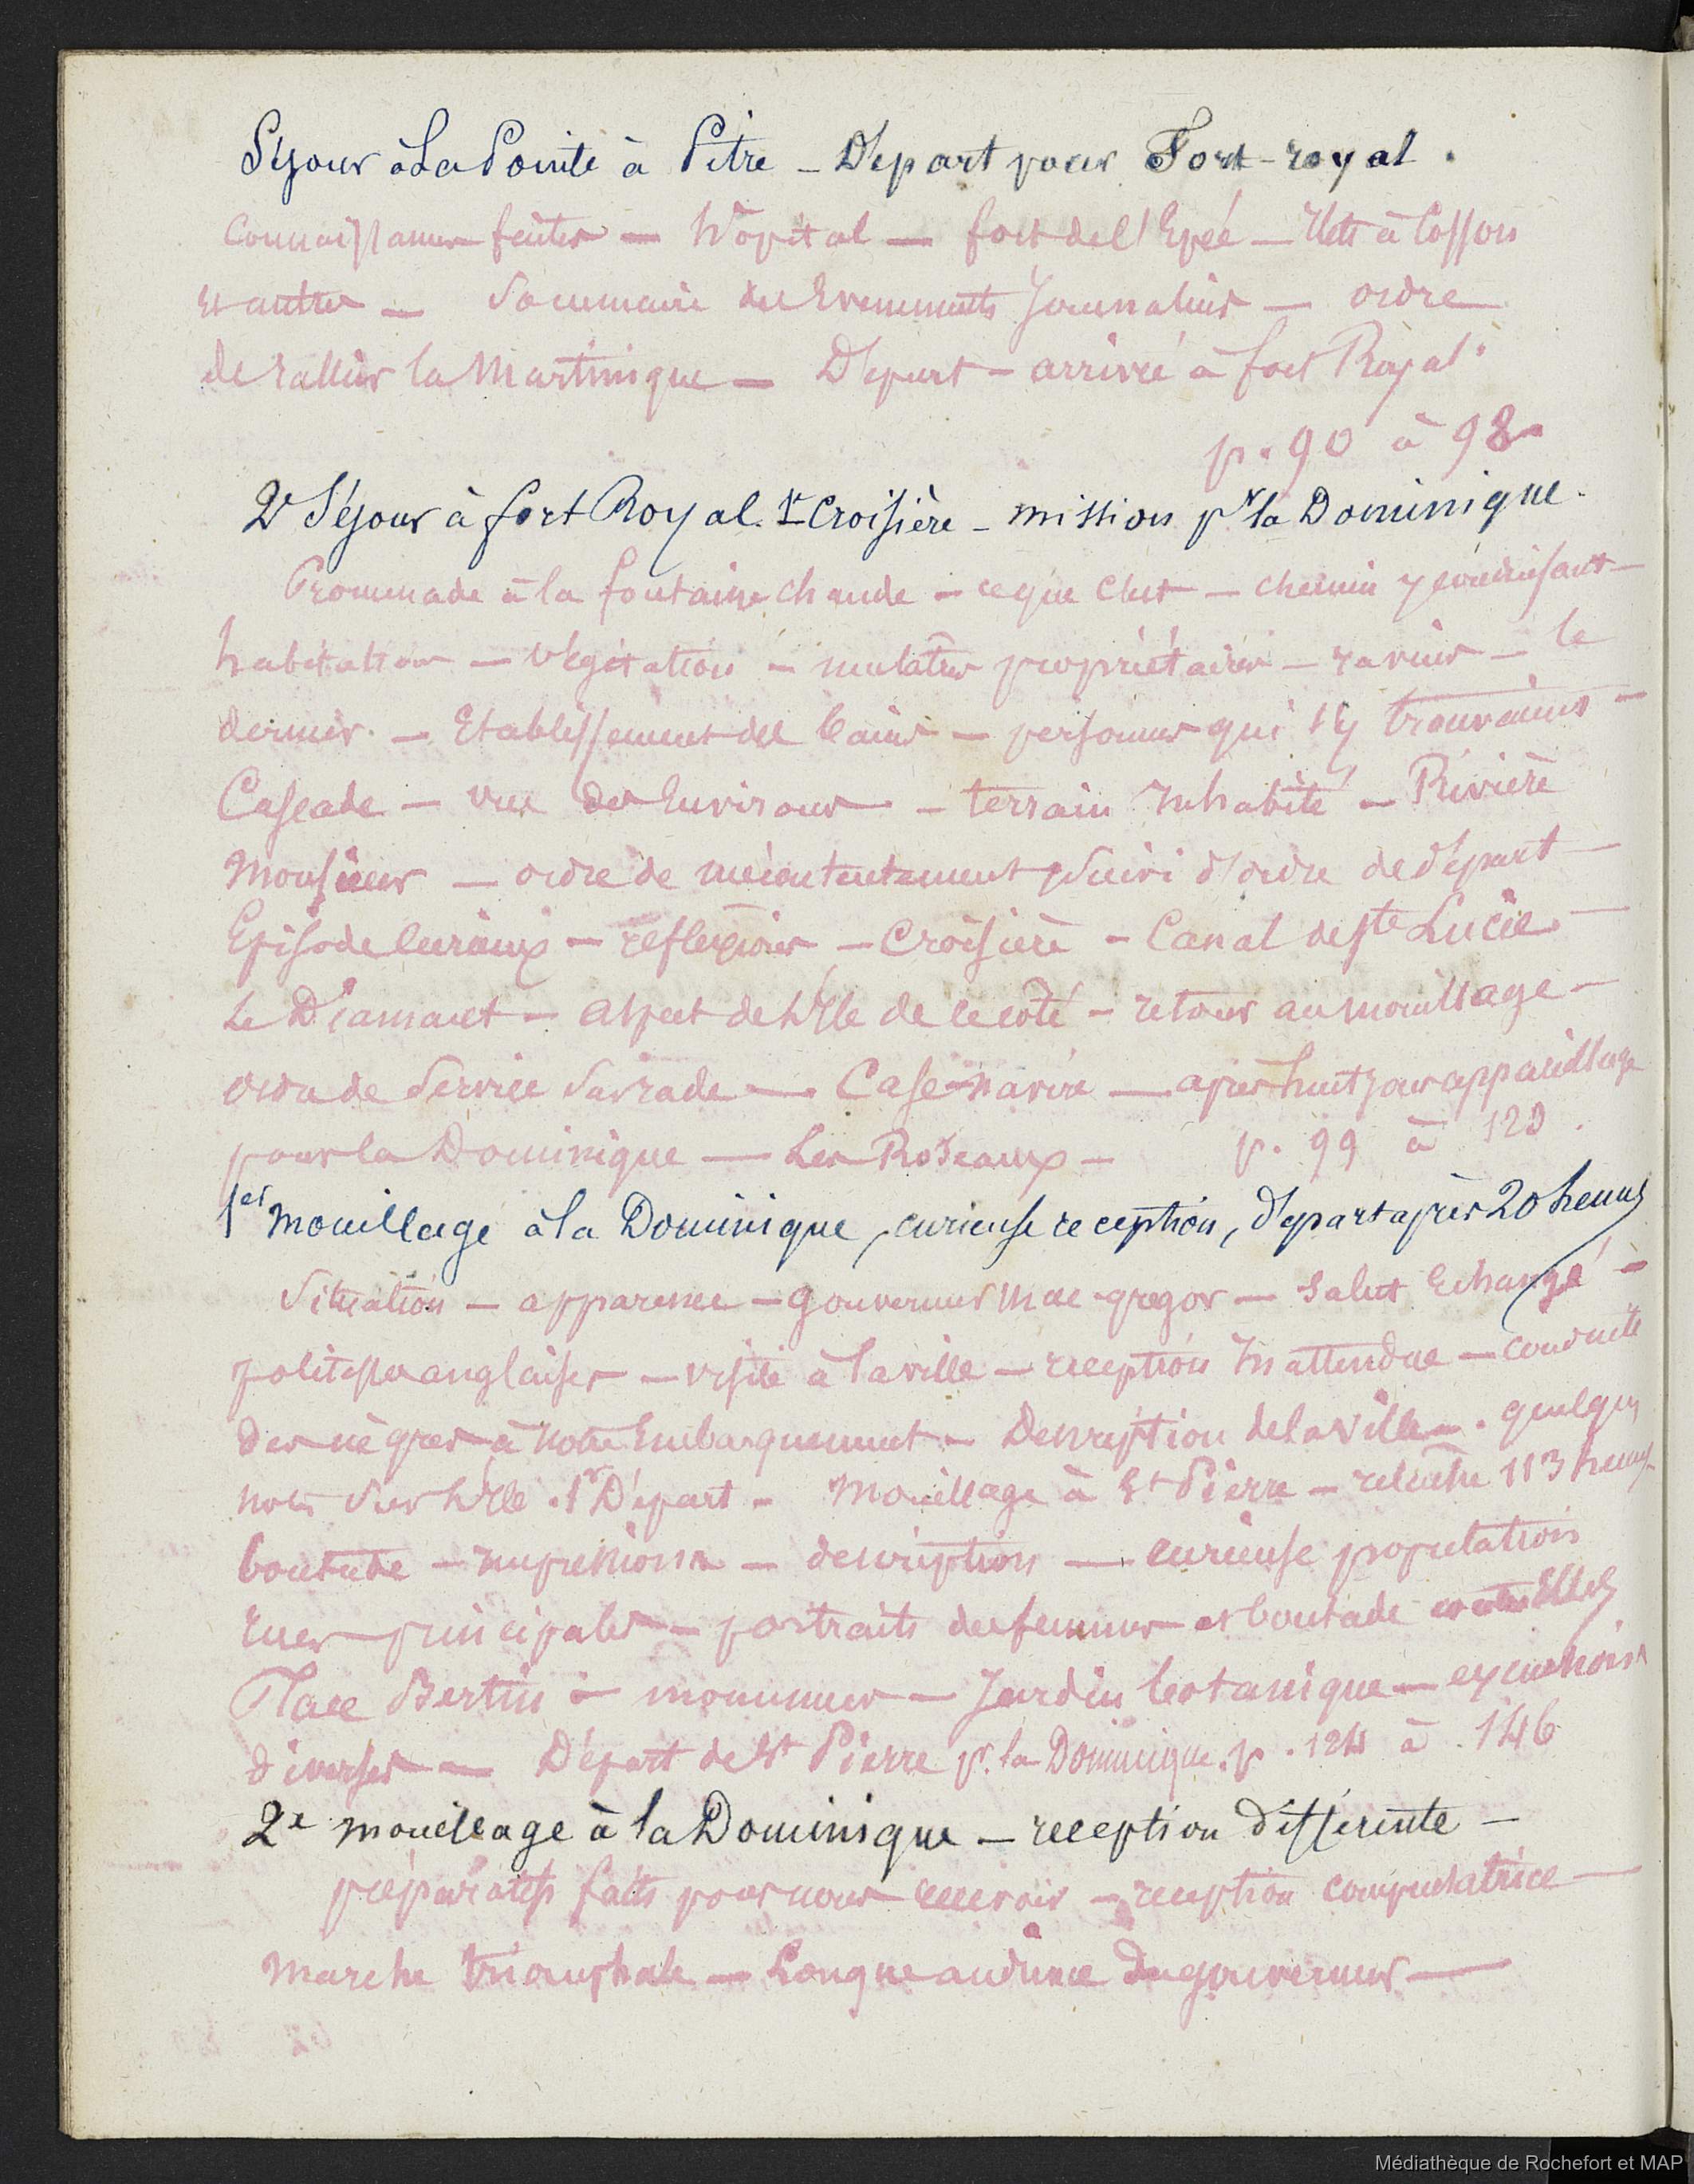 Séjour à La Pointe à Pitre – Départ pour Fort-royal.
Connaissances faites — hôpital — fort de l'Epée — Ilets à Cossons
et autres — Sommaire des Evenements Journaliers — ordre
de rallier la Martinique — Départ – arrivée à fort Royal.
p. 90 à 98
2e Séjour à fort Royal. 1re Croisière – mission pr la Dominique.
Promenade à la fontaine chaude – ce que c'est – chemin y conduisant –
habitations – végétation – mulatres propriétaires – ravins – le
dernier. – Etablissement des bains – personnes qui s'y trouvaient –
Cascade – vue des Environs – terrain Inhabité – Rivière
Monsieur – ordre de mécontentement suivi d'ordre de départ –
Episode curieux – reflexions – Croisière – Canal de Ste Lucie. –
Le Diamant – aspect de l'Ile de ce coté – retour au mouillage –
ordre de Service Sur rade — Case-navire — apres huit jours appareillage
pour la Dominique — Les Roseaux – p. 99 à 123.
1er mouillage à la Dominique, curieuse reception, départ après 20 heures
Situation – apparence – gouverneur Mac-gregor – Salut Echangé –
politesses anglaises – visite à la ville – reception Inattendue – conduite
des nègres à notre Embarquement – Description de la ville –. quelques
notes Sur l'Ile. 1er Départ – Mouillage à St Pierre – relache 113 heures
boutade – impressions – description — curieuse population
Rues principales – portraits des femmes et boutade Elles
Place Bertin – monumens – Jardin botanique – excursions
diverses — Départ de St Pierre pr. la Dominique. p. 124 à 146
2e mouillage à la Dominique – reception différente –
préparatifs faits pour nous recevoir – reception
Marche triomphale — Longue audience du gouverneur —
Médiathèque de Rochefort et MAP